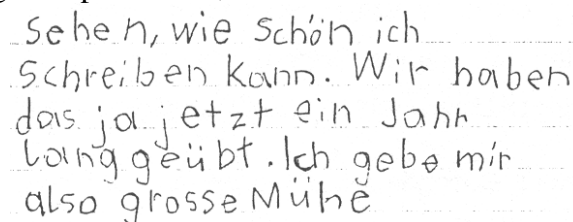 sehen, wie schön ich
schreiben kann. Wir haben
das ja jetzt ein Jahr
lang geübt. Ich gebe mir
also grosse Mühe